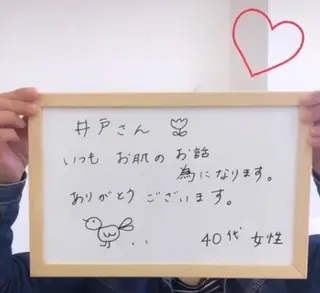 井戸さん
いつも お肌の お話
為になります。
ありがとう ございます。
40代 女性